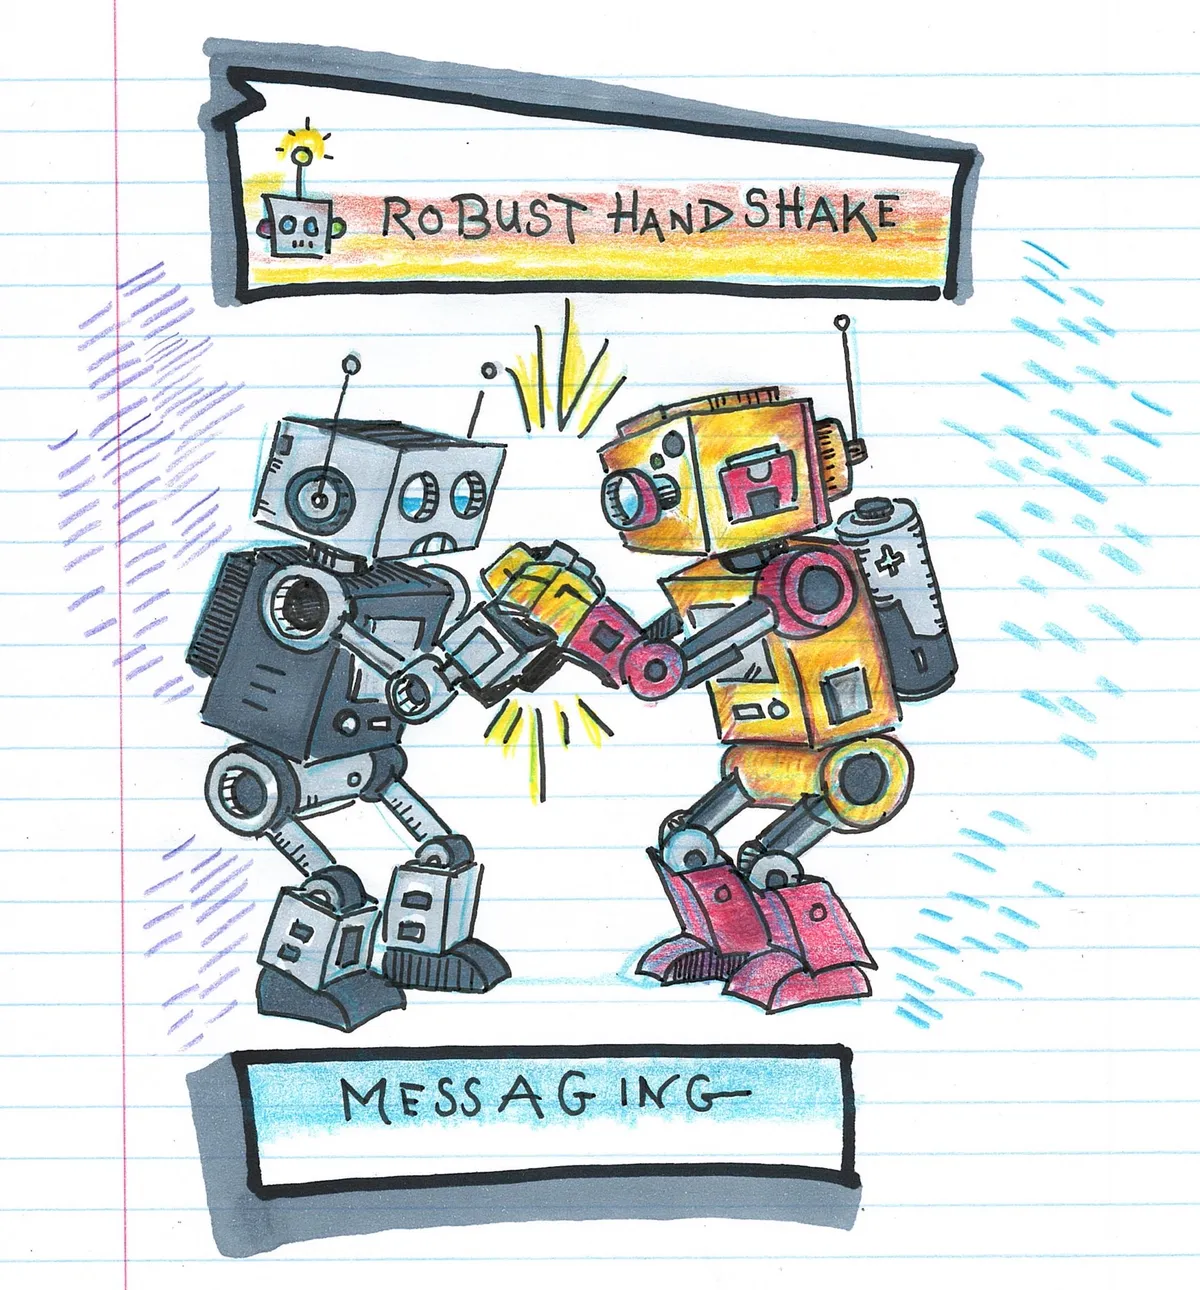 ROBUST HANDSHAKE
MESSAGING